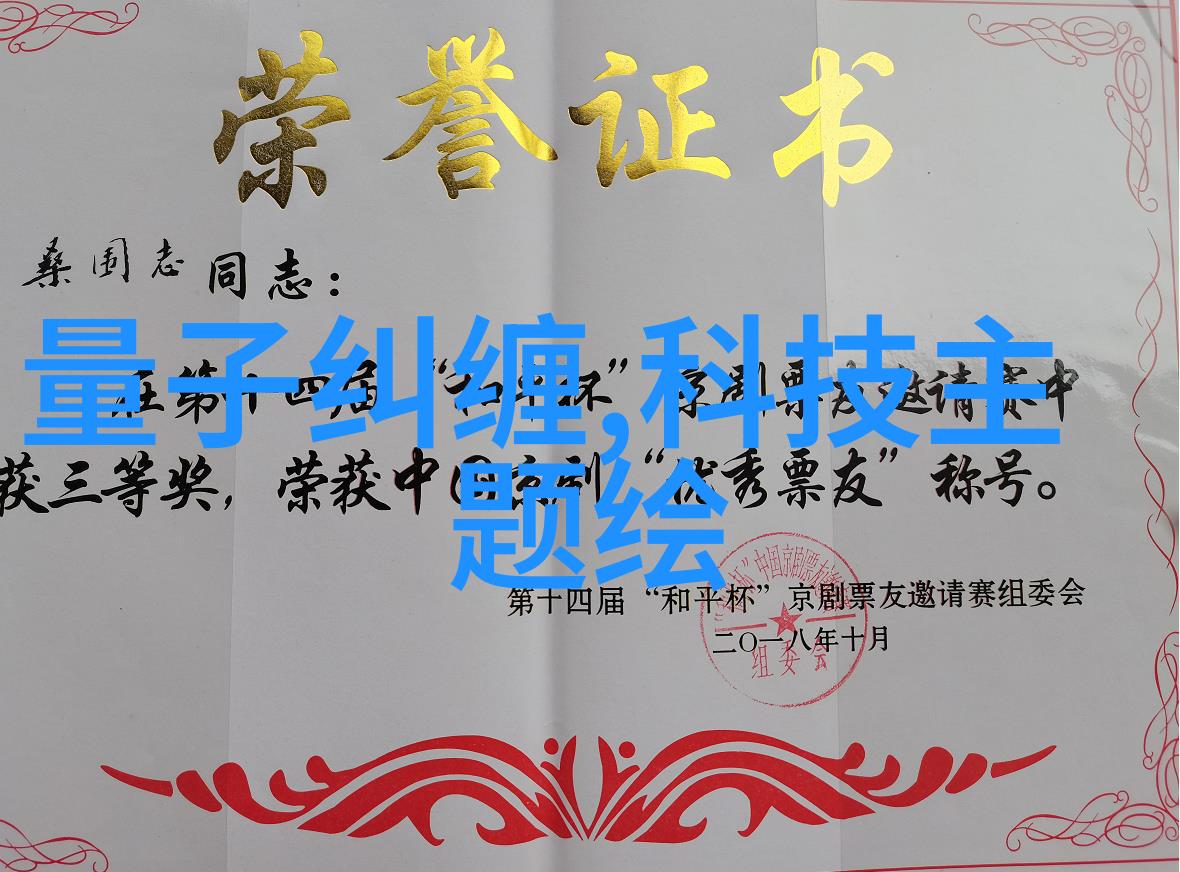 荣誉证书
桑国志 同志：
在第十四届“和平杯”京剧票友邀请赛中
获三等奖，荣获中国京剧“优秀票友”称号。
量子纠缠,科技主
题绘
第十四届“和平杯”京剧票友邀请赛组委会
二〇一八年十月
组委会